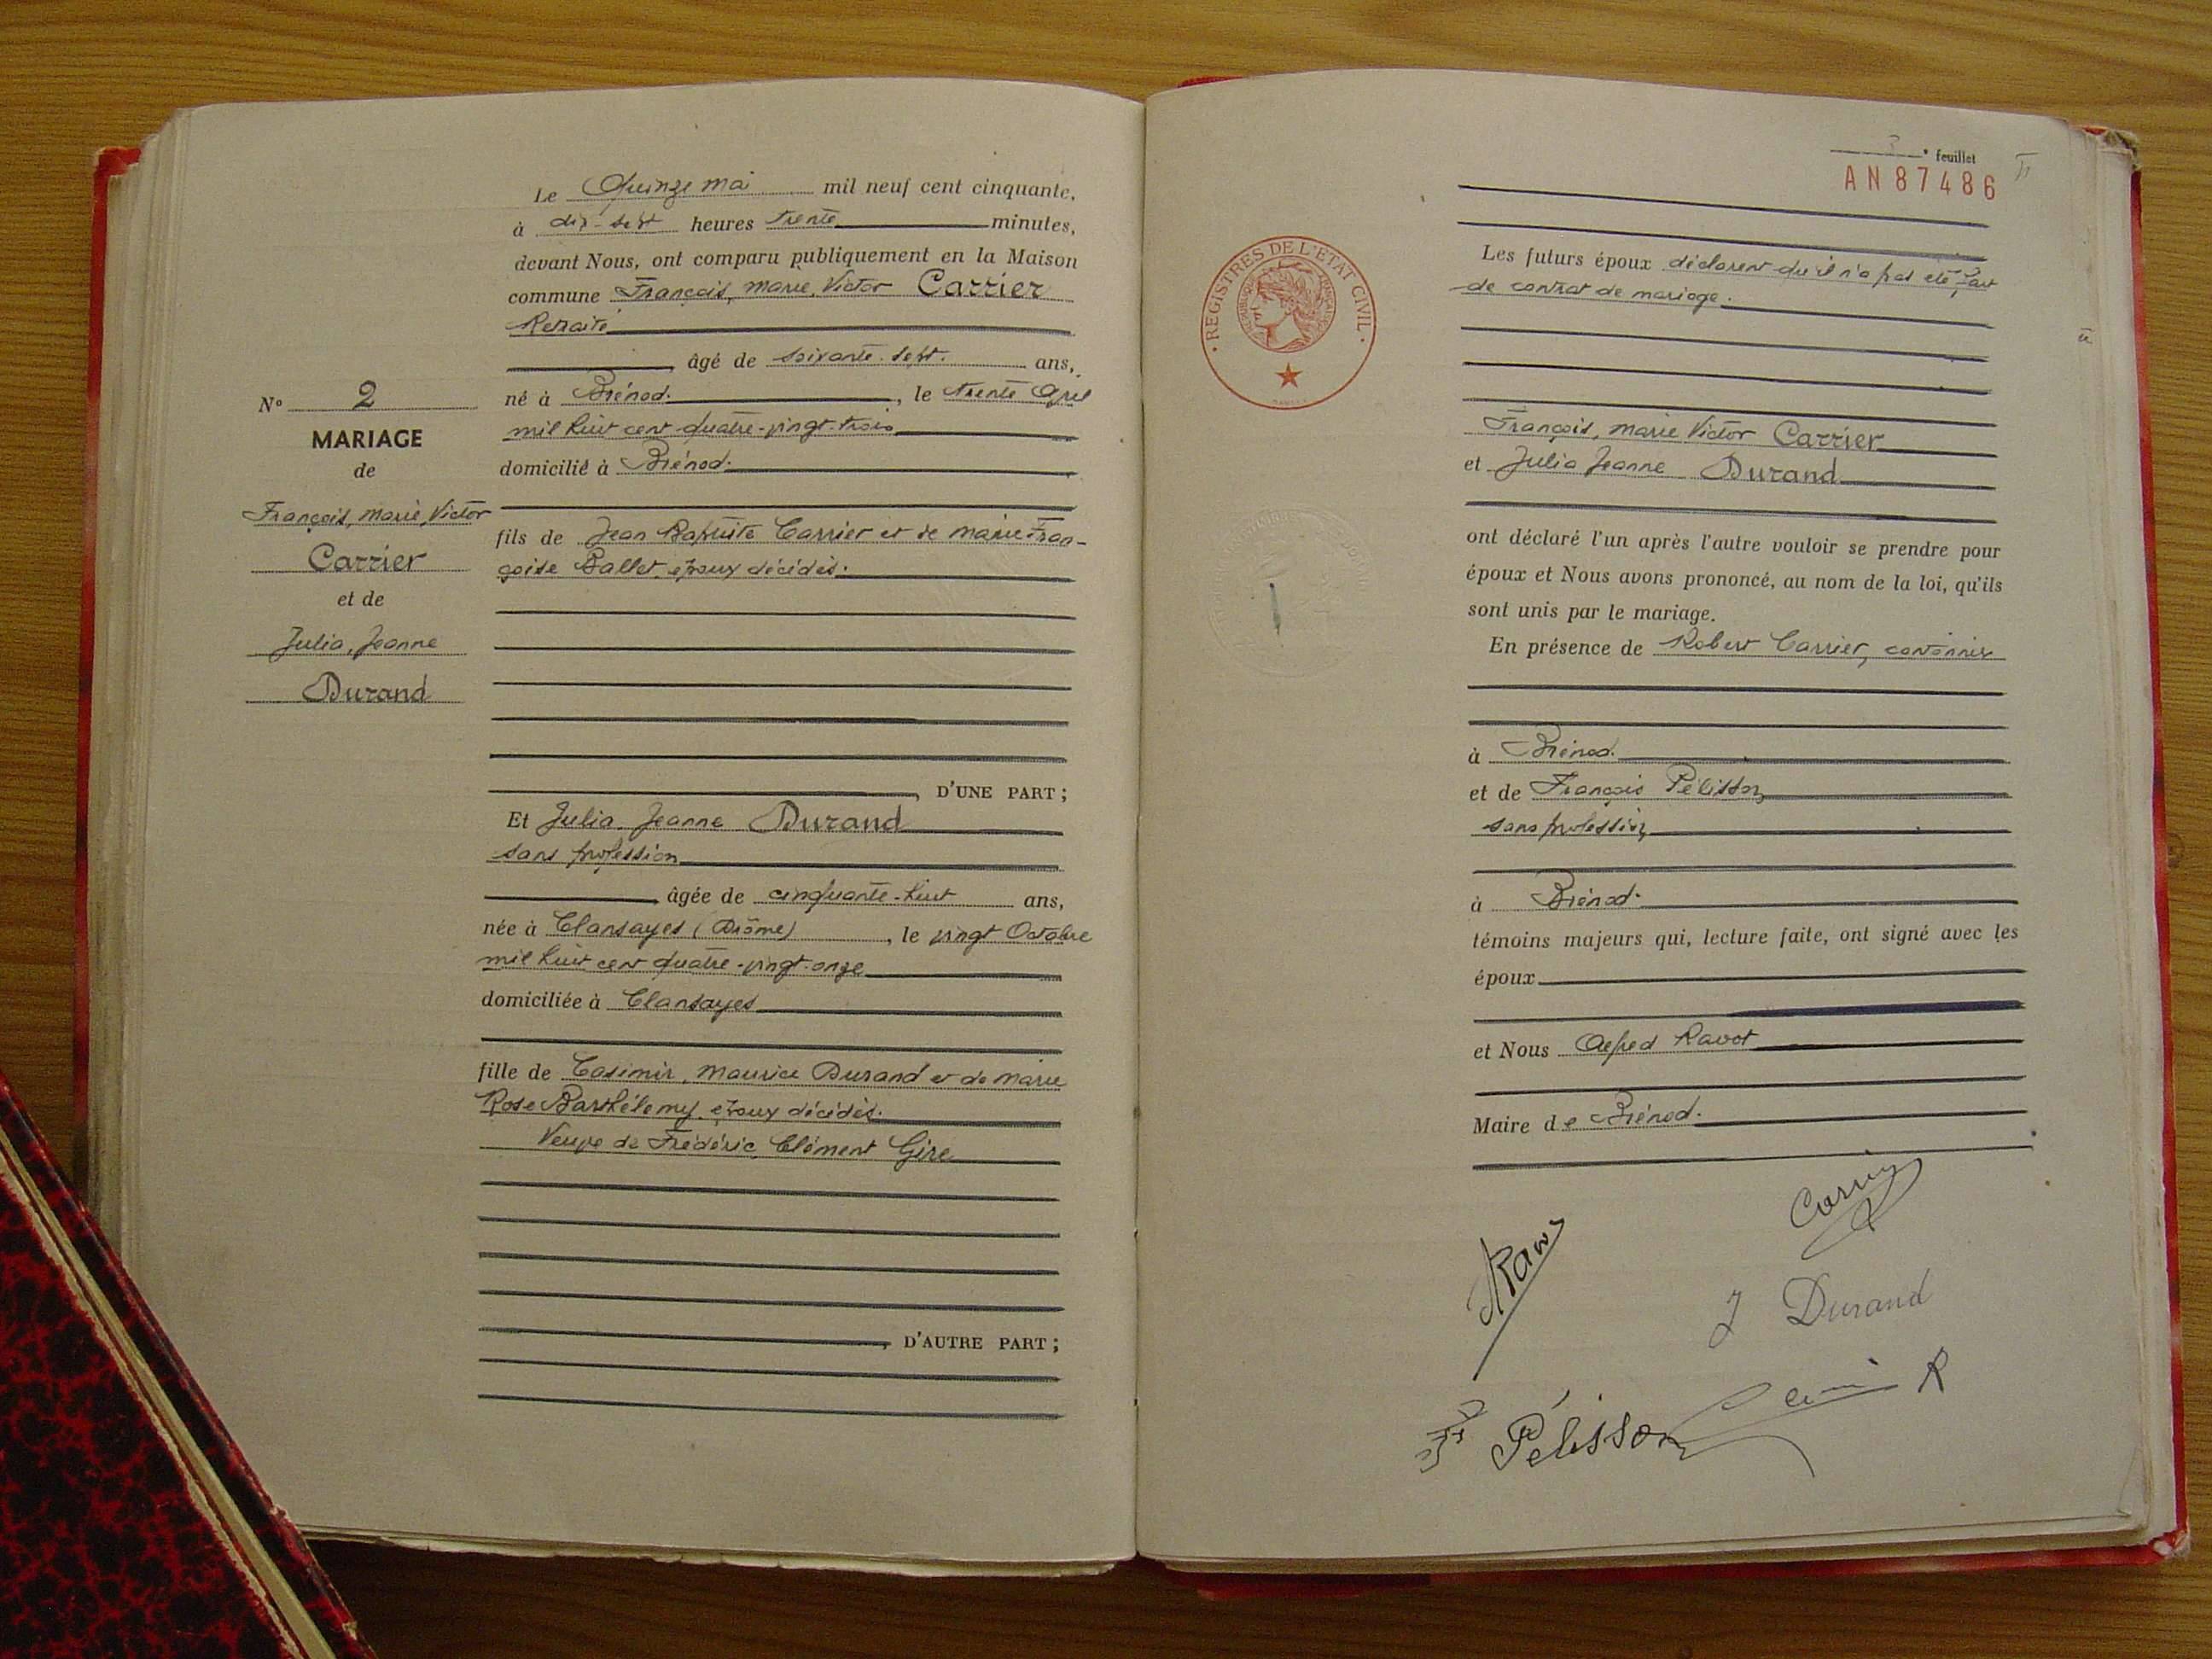 Le Quinze mai mil neuf cent cinquante,
à dix-sept heures trente minutes,
devant Nous, ont comparu publiquement en la Maison
commune François, marie, Victor Carrier
Retraité
âgé de soixante-sept. ans,
né à Brénod. , le trente Avril
mil huit cent quatre-vingt-trois
domicilié à Brénod.
fils de Jean Baptiste Carrier et de marie Fran-
çoise Ballet, époux décédés.
D'UNE PART ;
N° 2
MARIAGE
de
François, marie, Victor
Carrier
et de
Julia, Jeanne
Durand
Et Julia Jeanne Durand
sans profession
âgée de cinquante-huit ans,
née à Clansayes (Drôme) , le vingt Octobre
mil huit cent quatre-vingt-onze
domiciliée à Clansayes
fille de Casimir, maurice Durand et de marie
Rose Barthélemy, époux décédés.
Veuve de Frédéric, Clément Gire
D'AUTRE PART ;
3e feuillet
AN87486
REGISTRES DE L'ETAT CIVIL
Les futurs époux déclarent qu'il n'a pas été fait
de contrat de mariage.
François, marie Victor Carrier
et Julia Jeanne Durand
ont déclaré l'un après l'autre vouloir se prendre pour
époux et Nous avons prononcé, au nom de la loi, qu'ils
sont unis par le mariage.
En présence de Robert Carrier, cantonnier
à Brénod.
et de François Pélisson
sans profession
à Brénod.
témoins majeurs qui, lecture faite, ont signé avec les
époux
et Nous Alfred Ravot
Maire de Brénod.
J Durand
Pélisson